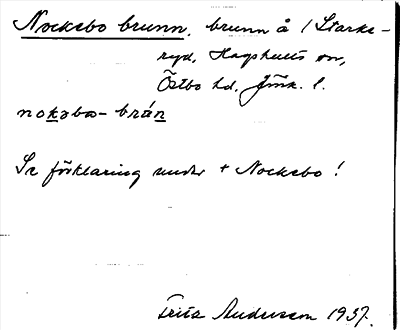 Nocksbo brunn, brunn å / Starke-
ryd, Hagshults sn,
Östbo hd, Jönk. l.
noksbo- brán
Se förklaring under + Nocksbo !
Fritz Andersson 1937.